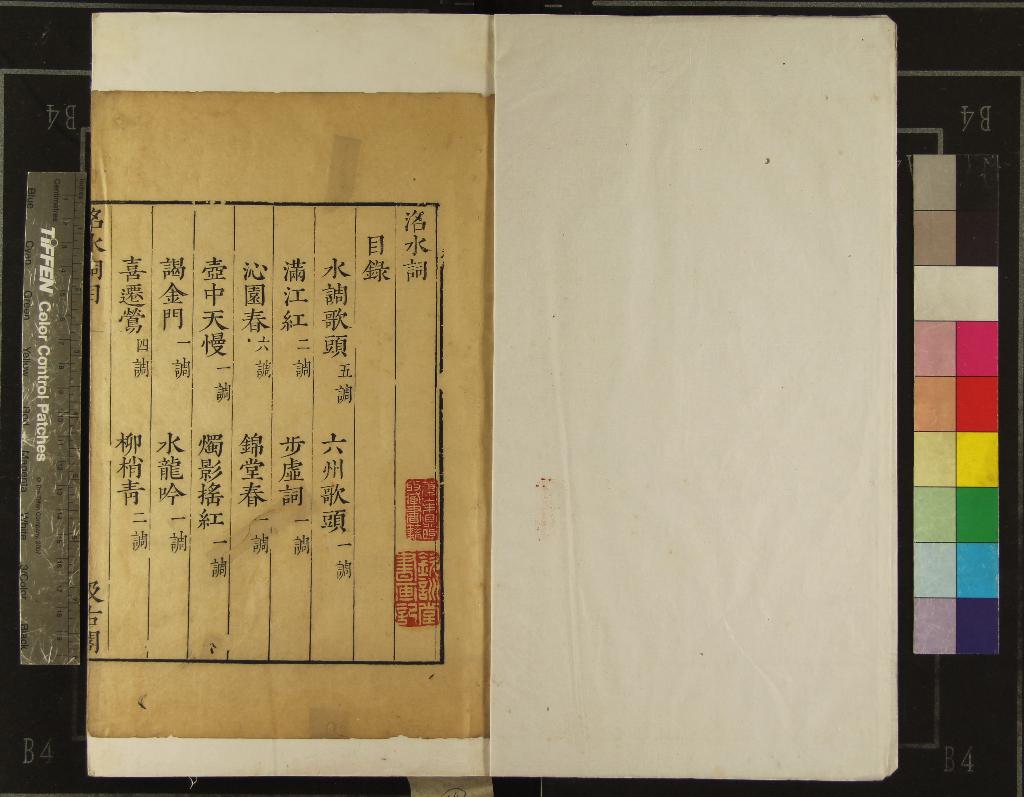 洺水詞
目錄
水調歌頭 五調 六州歌頭 一調
滿江紅 二調 步虛詞 一調
沁園春 六調 錦堂春 一調
壺中天慢 一調 燭影搖紅 一調
謁金門 一調 水龍吟 一調
喜遷鶯 四調 柳梢青 二調
洺水詞目 一 汲古閣
欽訓堂書画記
TIFFEN Color Control Patches
Centimetres
Blue
Cyan
Green
Yellow
Red
Magenta
White
3/Color
Black
B4
B4
B4
B4